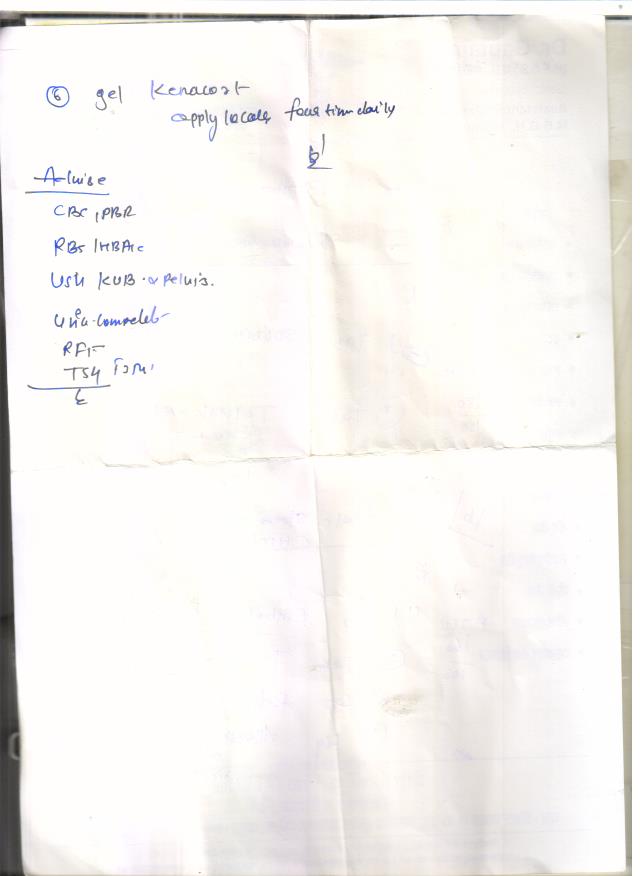 ⑥ gel Kenacort
apply locale four time daily
Advise
CBC, PBR
RBS / HBA1c
USG KUB & Pelvis.
Urine complet
RFT
TSH